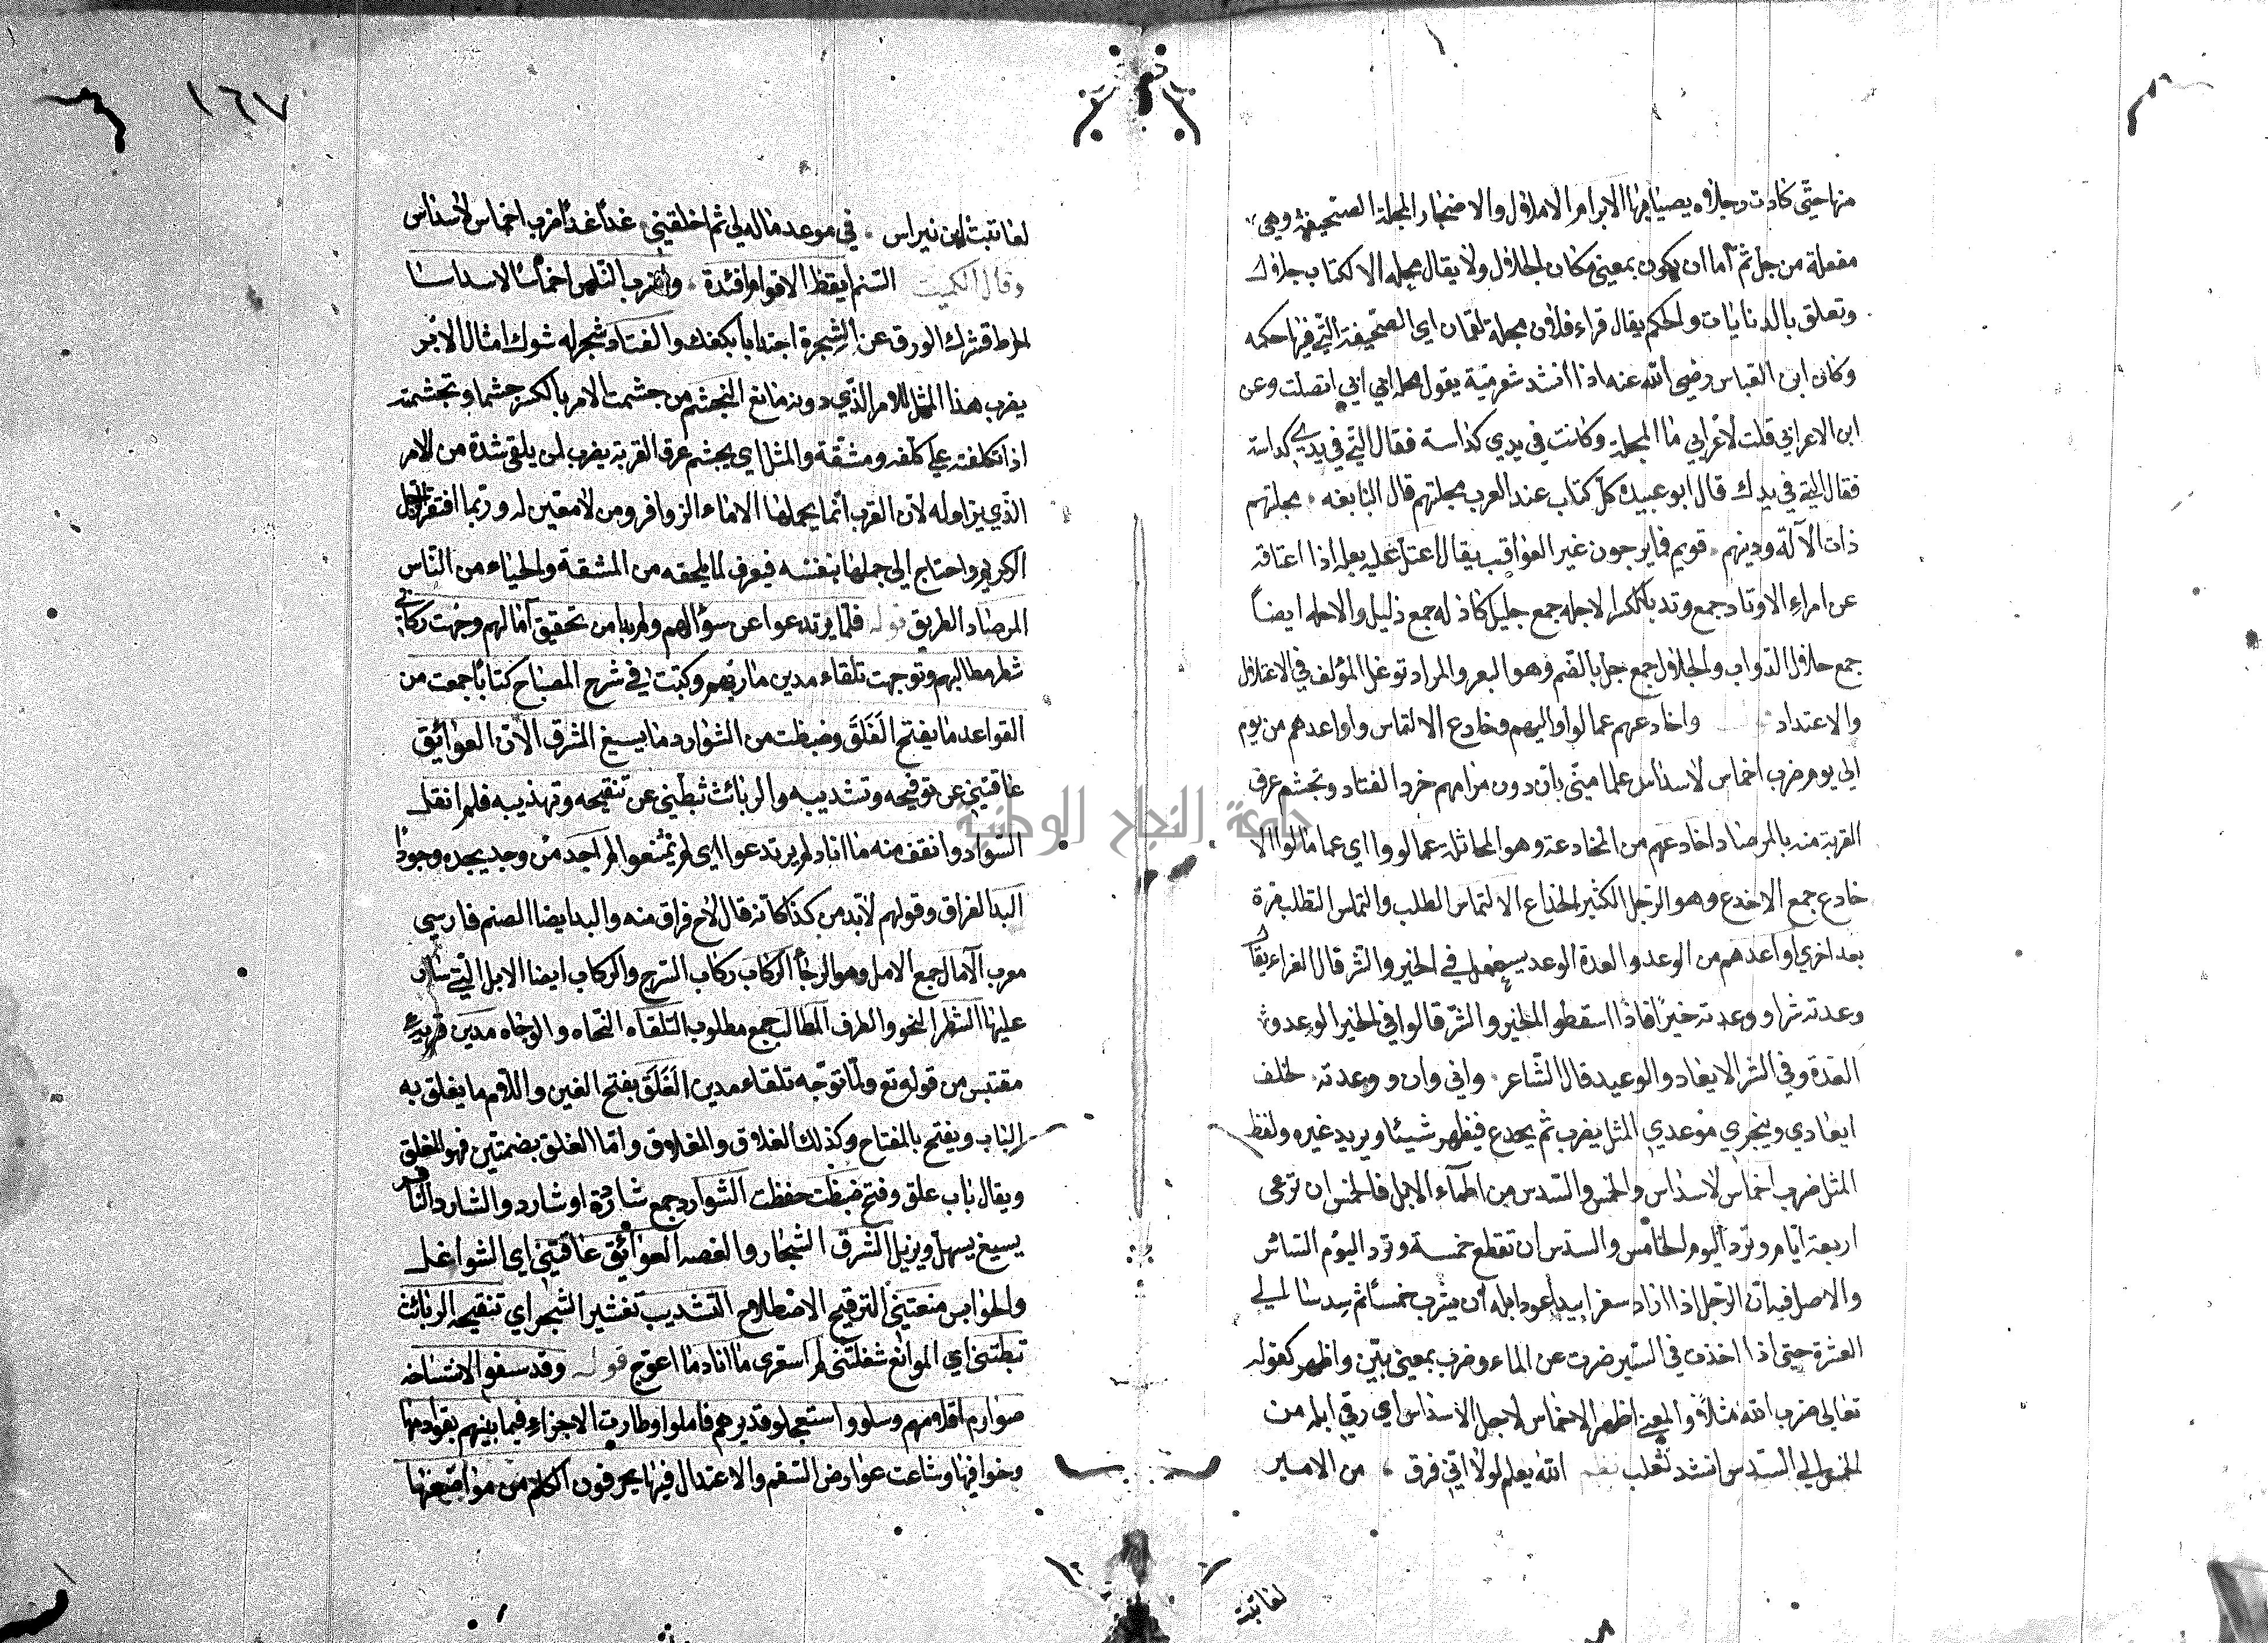 منها حتى كادت وجلاله يصيبا فيها الابرام الاملال والاضجار المجلة الصحيفة وهي
مفعلة من جل ثم اما ان يكون بمعنى مكان الجلال ولا يقال مجلة الا لكتاب جلاله
وتعلق بالديانات والحكم يقال قراء فلان مجلة لقمان اي الصحيفة التي فيها حكمه
وكان ابن العباس رضي الله عنه اذا انشد شعر يقول
ابن الاعرابي قلت لاعرابي ما المجلة وكانت في يدي كراسة فقال التي في يدك كراسة
فقال التي في يدك قال ابو عبيدة كل كتاب عند العرب مجلتهم قال النابغة مجلتهم
ذات الآله ودينهم قويم فما يرجون غير العواقب يقال اعتل عليه بعلة اذا اعتاقه
عن امراء الاوتاد جمع وتد بالكسر الاجلة جمع جليل كاذله جمع ذليل والاجله ايضاً
جمع جلال الدواب والجلال جمع جل بالضم وهو البعر والمراد توغل المؤلف في الاعتلال
والاعتداد واخادعهم عما لووا اليهم وخادع الالتماس واواعدهم من يوم
الى يوم ضرب اخماس لاسداس علما مني بان دون مرامهم خرط القتاد وتجشم عرق
القربة منه بالمرصاد اخادعهم من المخادعة وهو المماثلة عما لووا اي عما مالوا الا
خادع جمع الاخدع وهو الرجل الكثير الخداع الالتماس الطلب والتماس التطلب مرة
بعد اخرى اواعدهم من الوعد والعدة الوعد يستعمل في الخير والشر قال الفراء يقا
وعدته شرا ووعدته خيرًا فاذا اسقطوا الخير والشر قالوا في الخير الوعد و
العدة وفي الشر الايعاد والوعيد قال الشاعر واني وان ووعدته لمخلف
ايعادي وينجزي موعدي المثل يضرب ثم يخدع فيظهر شيئا ويريد غيره ولفظ
المثل ضرب اخماس لاسداس والخمس والسدس من اظماء الابل فالخمس ان ترعى
اربعة ايام وترد اليوم الخامس والسدس ان تقطع خمسة وترد اليوم السادس
والاصل فيه ان الرجل اذا اراد سفرا بعيدا عود ابله ان يشرب خمسًا ثم سدسا الى
العشرة حتى اذا اخذت في السير ضرت عن الماء وضرب بمعنى بين واظهر كقوله
تعالى ضرب الله مثلا والمعنى اظهر الاخماس لاجل الاسداس اي رقى ابله من
الخمس الى السدس انشد ثعلب نظم الله يعلم لولا اني فرق من الامير
لعاتبت
١٦٧
لعاتبت ابن نبراس في موعد قاله لي ثم اخلفني غدًا غدًا ضرب اخماس لاسداس
وقال الكميت السنم ايقظ الاقوام افئدة واضرب الناس اخماسًا لاسداسا
الخرط قشرك الورق عن الشجرة اجتذابا بكفك والقتاد شجر له شوك امثال الابر
يضرب هذا المثل للامر الذي دونه مانع التجشم من جشمت الامر بالكسر جشما وتجشمته
اذا تكلفته على كلفه ومشقة والمثل اي يجشم عرق القربة يضرب لمن يلقى شدة من الامر
الذي يزاوله لان القرب انما يحملها الاماء الزوافر ومن لا معين له وربما افتقر الرجل
الكريم واحتاج الى حملها بنفسه فيعرف لما يلحقه من المشقة والحياء من الناس
المرصاد الطريق قوله فلما لم يرتدعوا عن سؤالهم ولم بدا من تحقيق آمالهم وجهت ركابي
شطر مطالبهم وتوجهت تلقاء مدين مآربهم وكتبت في شرح المصباح كتابًا جمعت من
القواعد ما يفتح الغلق وضبطت من الشوارد ما يسيغ الشرق الا ان العوائق
عاقتني عن توقيحه وتشذيبه والربائث ثبطتني عن تنقيحه وتهذيبه فلم انقل
السواد وانقف منه ما اناد لم يرتدعوا اي لم يمتنعوا لم اجد من وجد يجده وجودًا
البد الفراق وقولهم لابد من كذا كانه قال لا فراق منه والبد ايضا الصنم فارسي
معرب الآمال جمع الامل وهو الرجاء الركاب ركاب السرج والركاب ايضا الابل التي سار
عليها الشطر النحو والطرف المطالب جمع مطلوب التلقاء التجاه والوجاه مدين قرية
مقتبس من قوله تع ولما توجه تلقاء مدين الغلق بفتح الغين واللام ما يغلق به
الباب ويفتح بالمفتاح وكذلك الغلاق والمغلاق واما الغلق بضمتين فهو المغلق
ويقال باب غلق وفتح ضبطت حفظت الشوارد جمع شاردة او شارد والشارد النافر
يسيغ يسهل ويزيل الشرق الشجار والغصه العوائق عاقتني اي الشواغل
والحوابس منعتني الترقيح الاصطلاح التشذيب تقشير الشجر اي تنقيحه الربائث
ثبطتني اي الموانع شغلتني لم استقرى ما اناد ما اعوج قوله وقد سفو الانتساخه
صوارم اقلامهم وسلوا واستعجلو قديرهم فاملوا وطارت الاجزاء فيما بينهم بقوادمها
وخوافيها وشاعت عوارض السقم والاعتدال فيها يحرفون الكلم من مواضعها
جامعة النجاح الوطنية